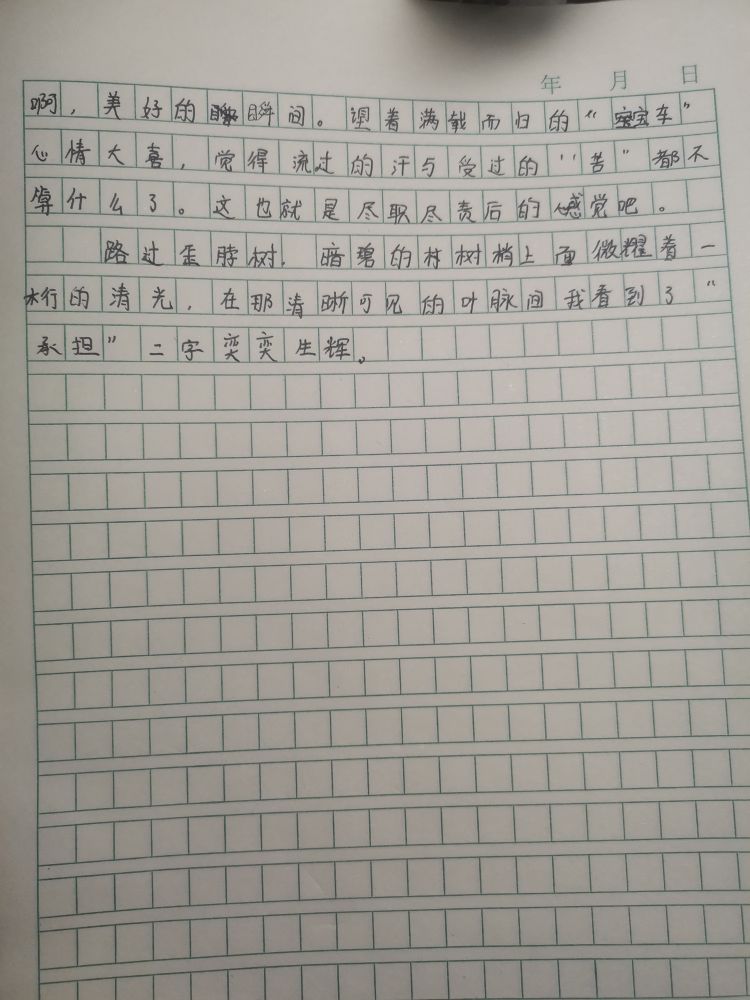 年 月 日
啊，美好的瞬间。望着满载而归的“宝车”
心情大喜，觉得流过的汗与受过的“苦”都不
算什么了。这也就是尽职尽责后的感觉吧。
路过歪脖树，暗碧的林树梢上面微耀着一
的清光，在那清晰可见的叶脉间我看到了“
承担”二字奕奕生辉。